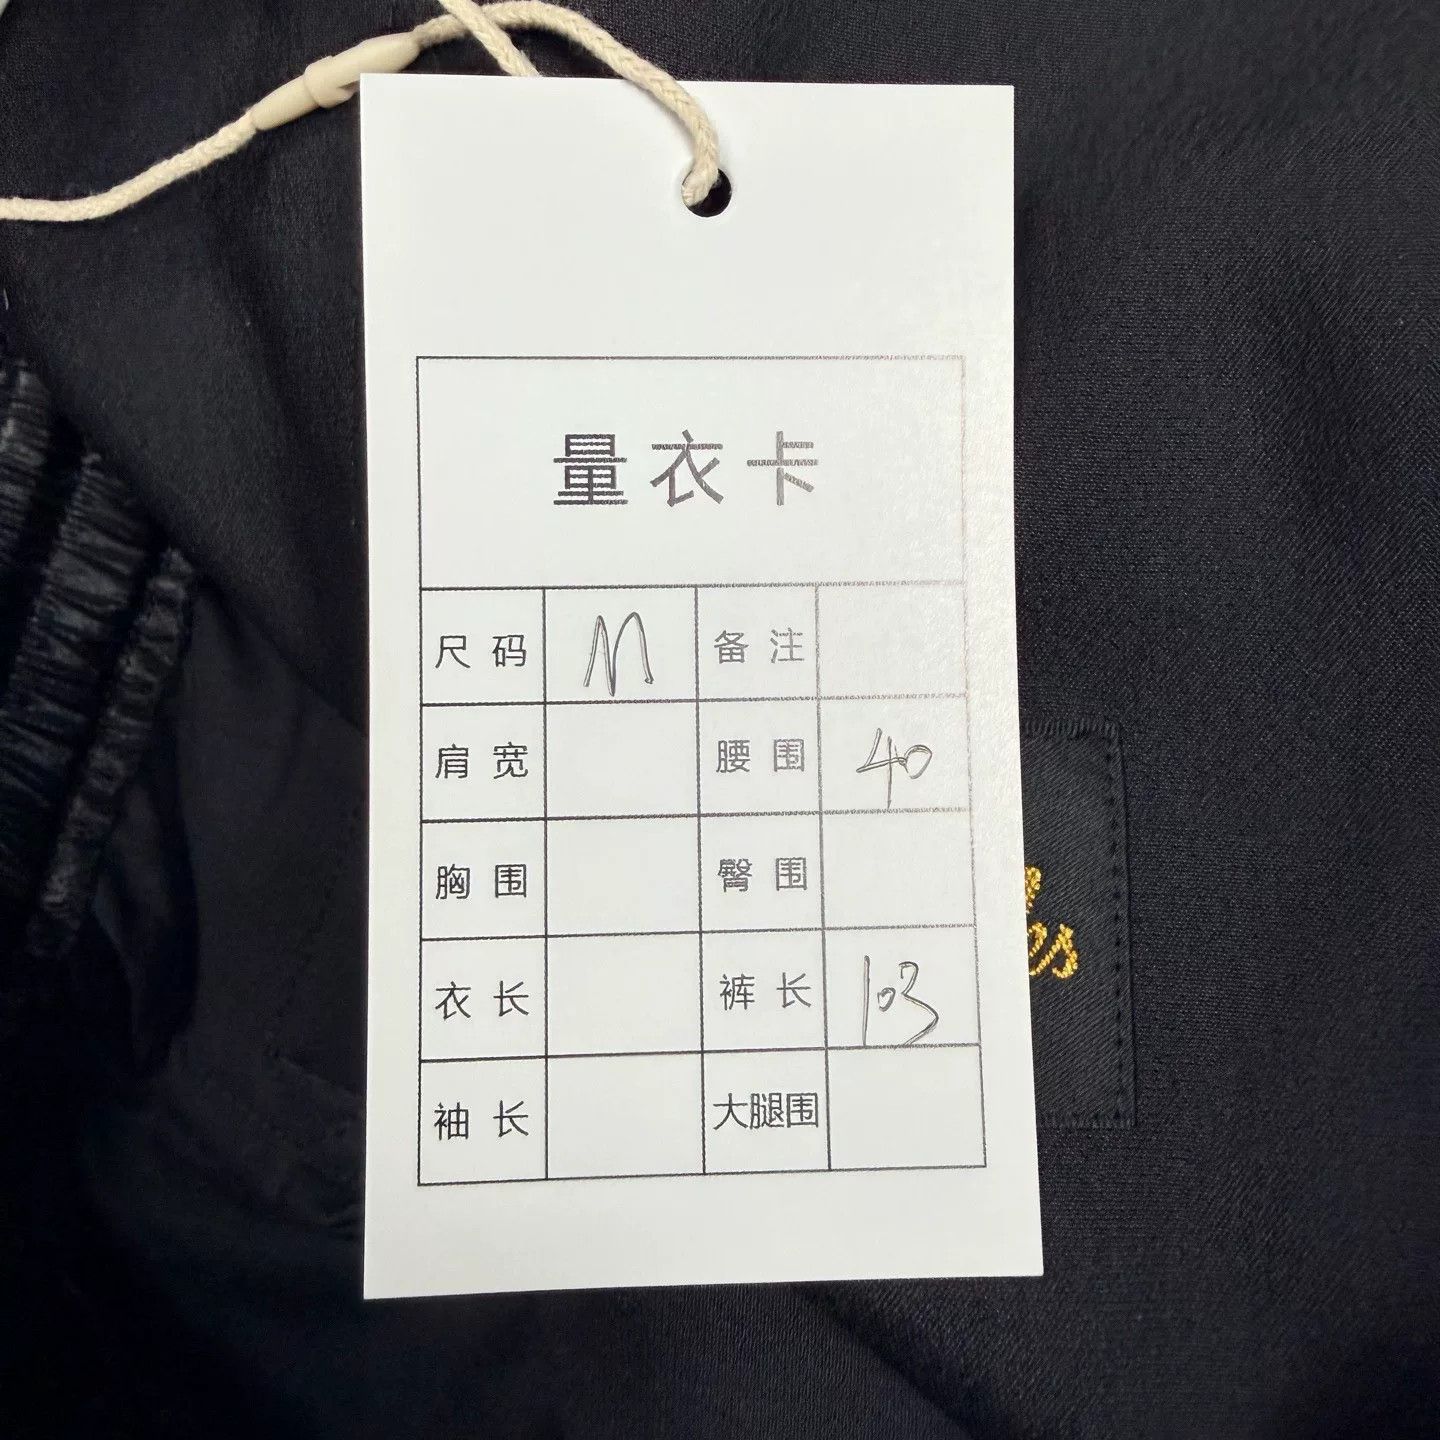 量衣卡
尺码 M 备注
肩宽 腰围 40
胸围 臀围
衣长 裤长 103
袖长 大腿围
es